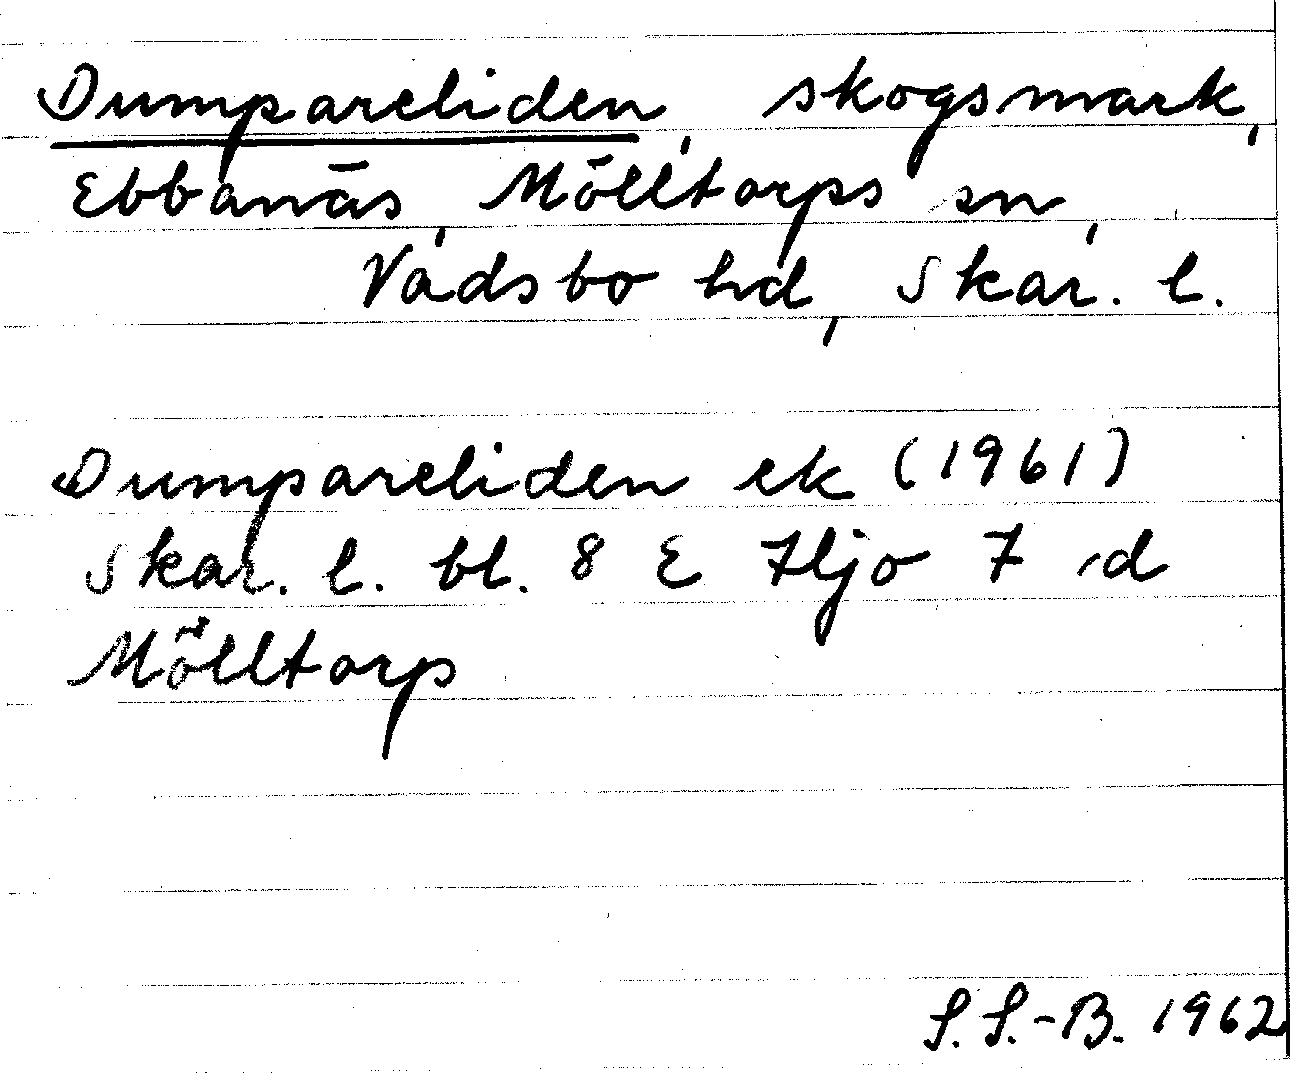 Dumpareliden, skogsmark,
Ebbanäs, Mölltorps sn,
Vadsbo hd, Skar. l.
Dumpareliden ek (1961)
Skar. l. bl. 8 E Hjo 7 d
Mölltorp
S. S.-B. 1962